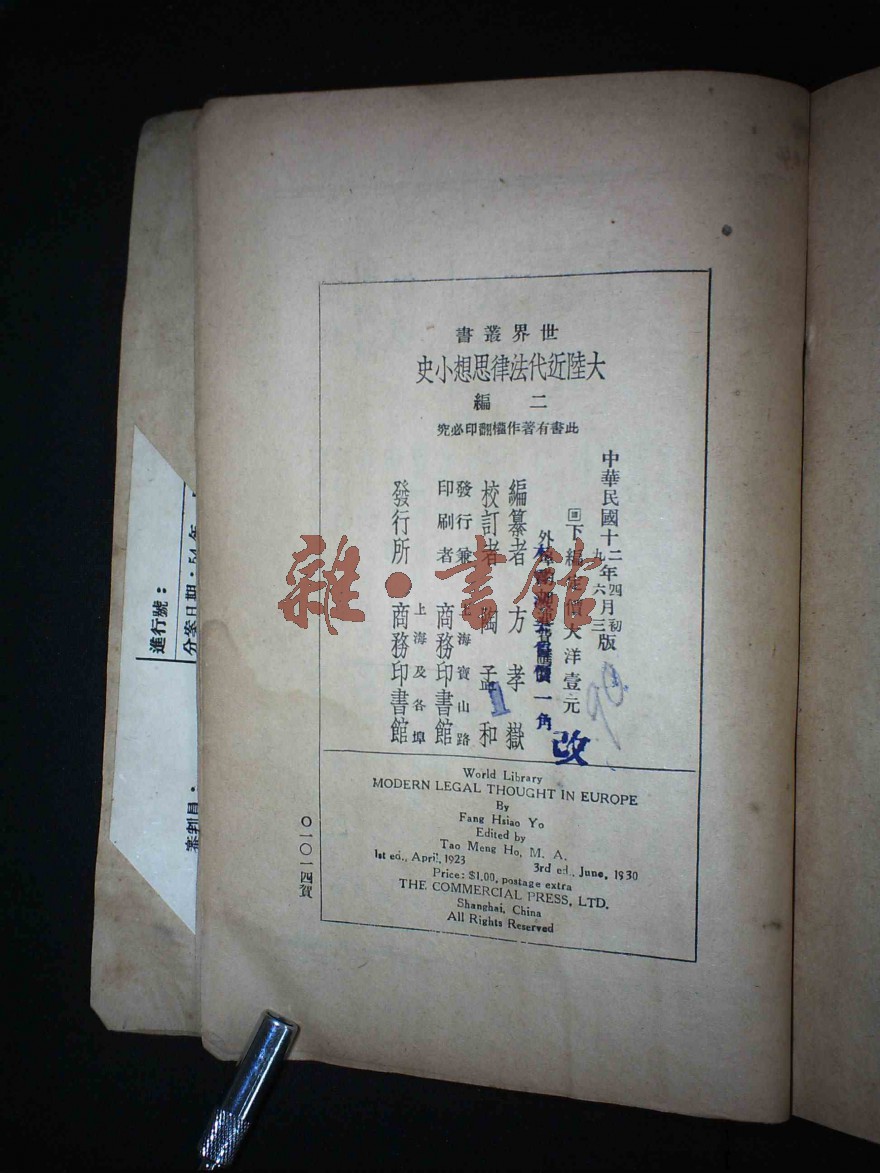 世界叢書
大陸近代法律思想小史
二編
此書有著作權翻印必究
中華民國十二年四月初版
九年六月三
下編定價大洋壹元
外
一角
改
編纂者 方孝嶽
校訂者 陶孟和
發行兼印刷者 上海寶山路 商務印書館
發行所 上海及各埠 商務印書館
World Library
MODERN LEGAL THOUGHT IN EUROPE
By
Fang Hsiao Yo
Edited by
Tao Meng Ho, M. A.
1st ed., April, 1923 3rd ed., June, 1930
Price: $1.00, postage extra
THE COMMERCIAL PRESS, LTD.
Shanghai, China
All Rights Reserved
〇一〇一四賀
進行號：
分案日期：54年
審判員：
雜·書館